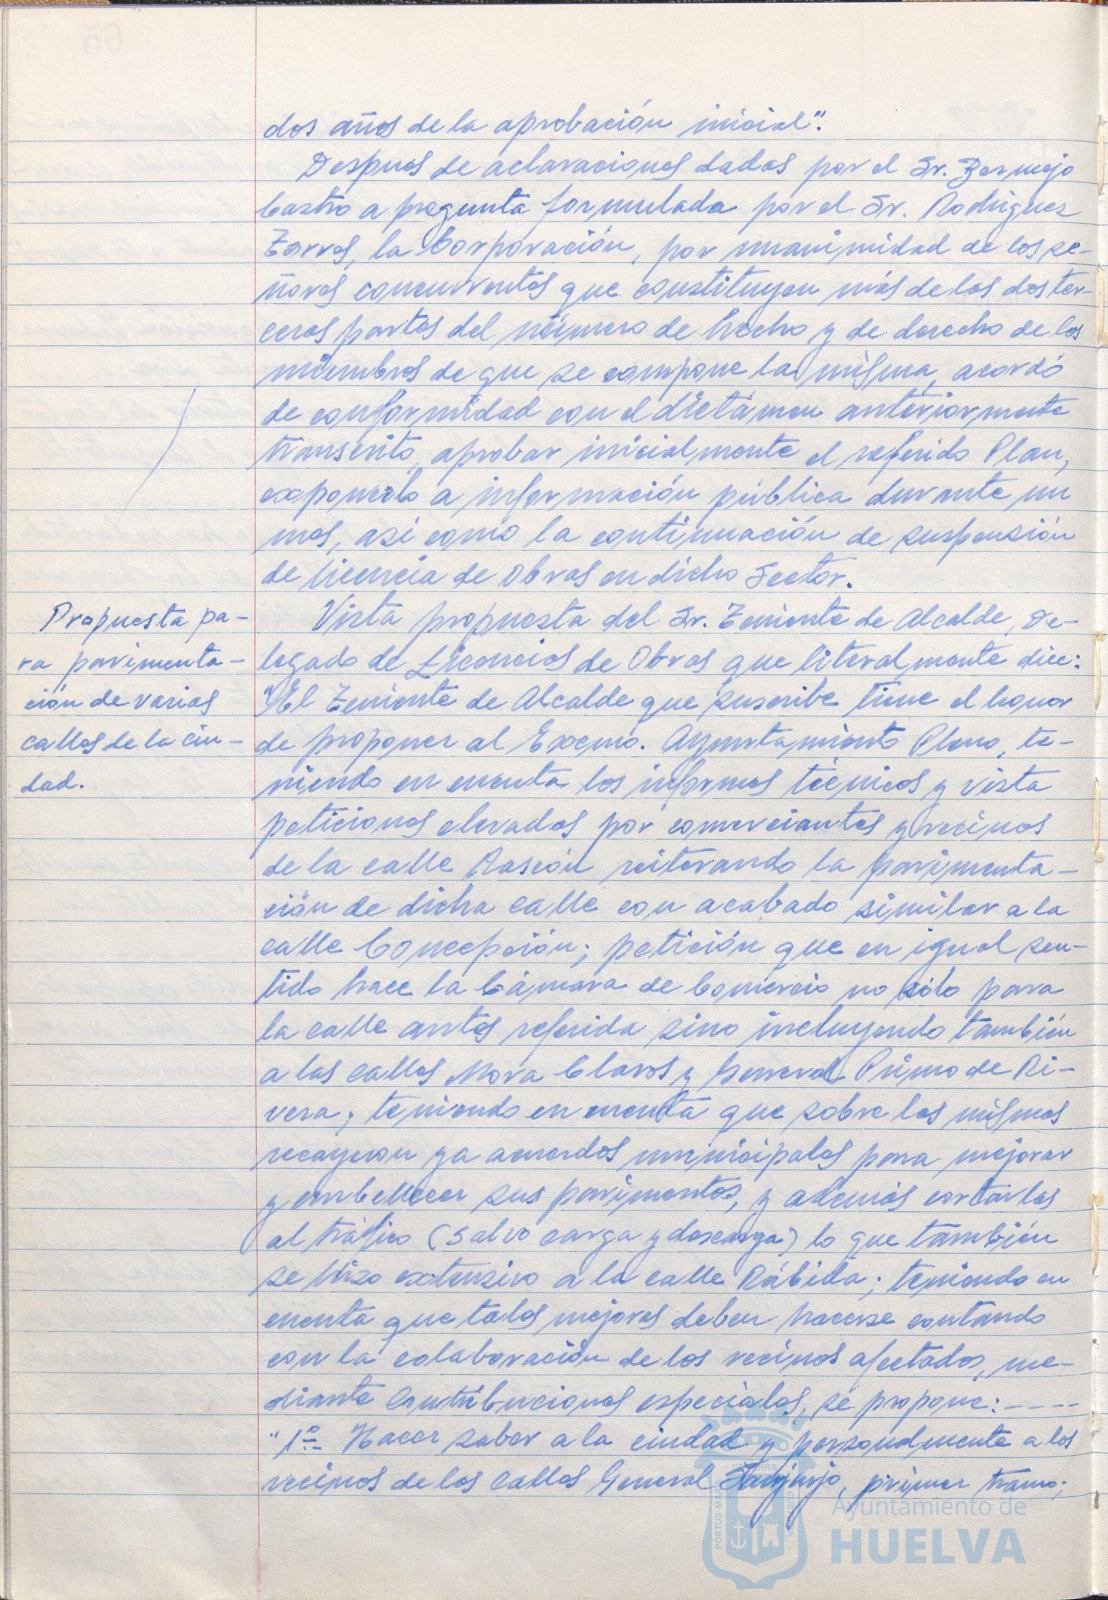 dos años de la aprobación inicial".
Despues de aclaraciones dadas por el Sr. Bermejo
Castro a pregunta formulada por el Sr. Rodriguez
Torres, la Corporación, por unanimidad de los se-
ñores concurrentes que constituyen más de las dos ter-
ceras partes del número de hecho y de derecho de los
miembros de que se compone la misma, acordó
de conformidad con el dictámen anteriormente
transcrito, aprobar inicialmente el referido Plan,
exponerlo a información pública durante un
mes, así como la continuación de suspensión
de licencia de Obras en dicho Sector.
Propuesta pa-
ra pavimenta-
ción de varias
calles de la ciu-
dad.
Vista propuesta del Sr. Teniente de Alcalde, De-
legado de Licencias de Obras que literalmente dice:
"El Teniente de Alcalde que suscribe tiene el honor
de proponer al Excmo. Ayuntamiento Pleno, te-
niendo en cuenta los informes técnicos y vista
peticiones elevadas por comerciantes y vecinos
de la calle Rascón reiterando la pavimenta-
ción de dicha calle con acabado similar a la
calle Concepción; petición que en igual sen-
tido hace la Cámara de Comercio no sólo para
la calle antes referida sino incluyendo también
a las calles Mora Claros y General Primo de Ri-
vera; teniendo en cuenta que sobre las mismas
recayeron ya acuerdos municipales para mejorar
y embellecer sus pavimentos, y además cortarlas
al tráfico (salvo carga y descarga) lo que también
se hizo extensivo a la calle Rábida; teniendo en
cuenta que tales mejoras deben hacerse contando
con la colaboración de los vecinos afectados, me-
diante Contribuciones especiales, se propone: ----
"1º- Hacer saber a la ciudad y personalmente a los
vecinos de las calles General Sanjurjo, primer tramo;
Ayuntamiento de
HUELVA